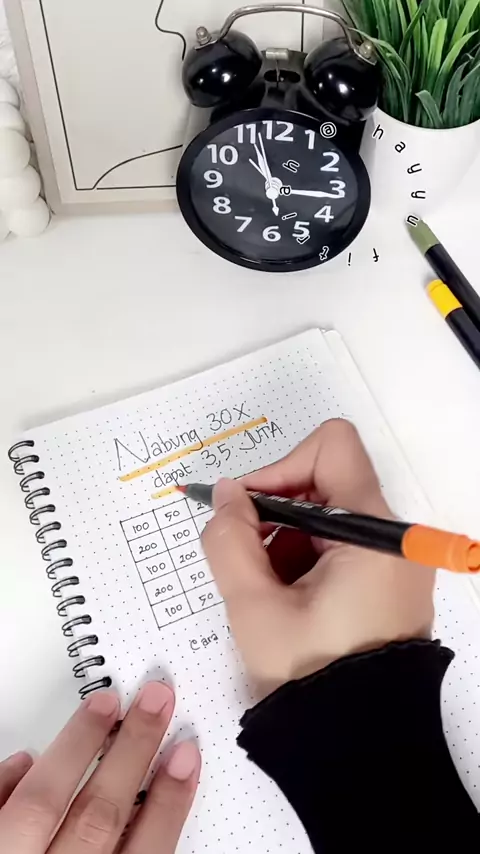 11 12 1
10 2
9 3
8 4
7 6 5
Nabung 30x
dapat 3,5 JUTA
100 50
200 100
100 200
200 50
100 50
Cara